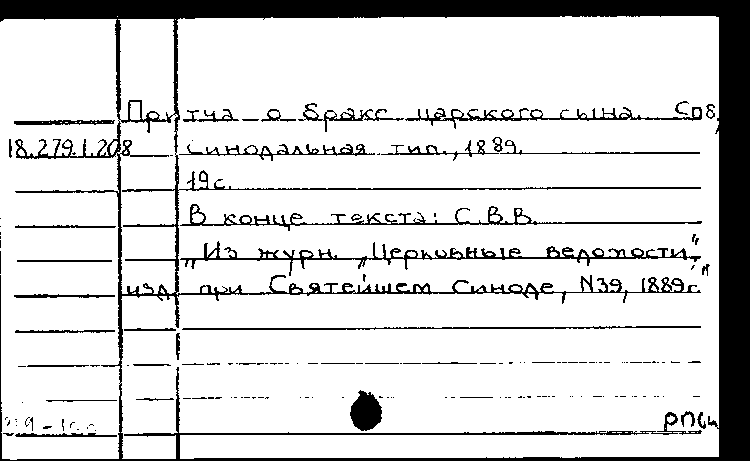 Притча о браке царского сына. Спб,
18.279.1.208 Синодальная тип., 1889.
19с.
В конце текста: С.В.В.
„Из журн. „Церковные ведомости",
изд. при Святейшем Синоде, N39, 1889г."